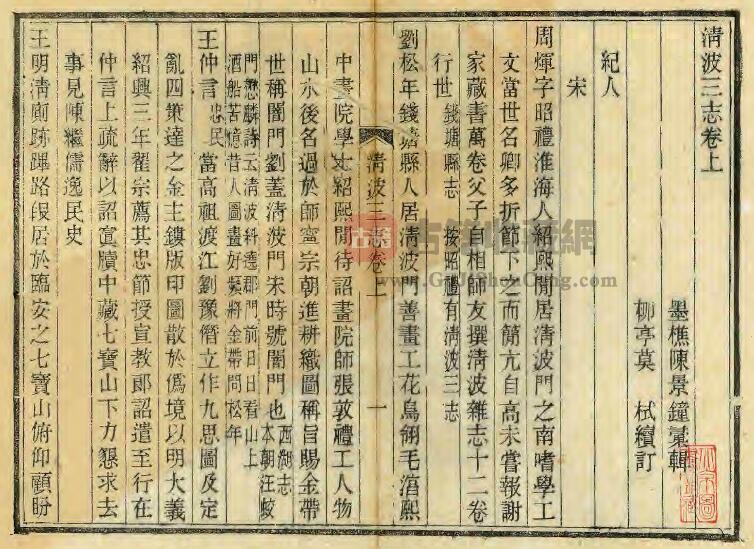 清波三志卷上
墨樵陳景鐘彙輯
柳亭莫　栻續訂
紀人
宋
周煇字昭禮淮海人紹熙閒居清波門之南嗜學工
文當世名卿多折節下之而簡亢自高未嘗報謝
家藏書萬卷父子自相師友撰清波雜志十二卷
行世 錢塘縣志　按昭禮有清波三志
劉松年錢塘縣人居清波門善畫工花鳥翎毛淳熙
清波三志卷上
一
中畫院學士紹熙閒待詔畫院師張敦禮工人物
山水後名過於師寧宗朝進耕織圖稱旨賜金帶
世稱闇門劉蓋清波門宋時號闇門也 西湖志 本朝汪蛟
門懋麟詩云清波斜遶郡門前日日看山上
酒船苦憶昔人圖畫好擬將金帶問松年
王仲言 忠民 當高祖渡江劉豫僭立作九思圖及定
亂四策達之金主鏤版印圖散於僞境以明大義
紹興三年翟宗薦其忠節授宣教郎詔遣至行在
仲言上疏辭以詔寘牘中藏七寶山下力懇求去
事見陳繼儒逸民史
王明清廁跡蹕路叚居於臨安之七寶山俯仰顧盼
古籍收藏網
www.GuJiShouCang.com